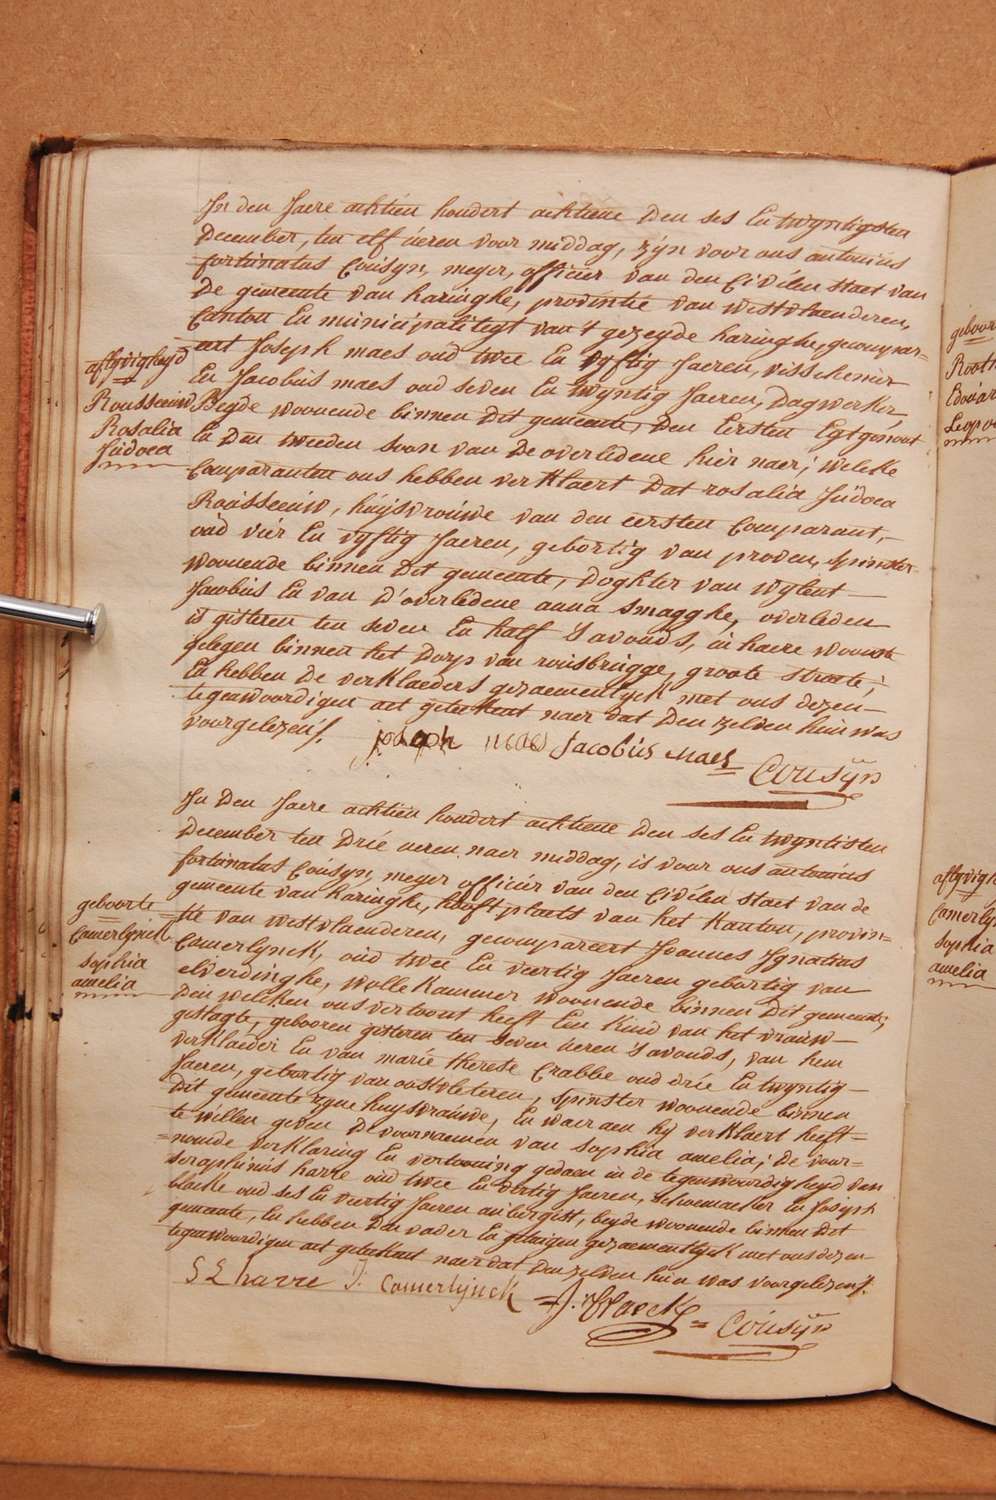 In den Jaere achtien hondert achtiene den ses En twyntigsten
December, ten elf üeren voor middag, zÿn voor ons antonius
fortünatus Coüsyn, meyer, officier van den Civielen staet van
De gemeente van haringhe, provintie van westvlaenderen,
Canton En municipaliteyt van 't gezeyde haringhe, gecompar-
eert Joseph maes oud twee En vyftig Jaeren, visschenier
En Jacobüs maes oud seven En twyntig Jaeren, Dagwerker,
Beyde woonende binnen Dit gemeente, Den Eersten Egtgenoot
En Den tweeden soon van De overledene hier naer; welcke
Comparanten ons hebben verklaert Dat rosalia Jüdoca
Roüsseeuw, hüÿsvroüwe van den eersten Comparant,
oüd vier En vyftig Jaeren, gebortig van proven, spinster
woonende binnen Dit gemeente, Doghter van wylent
Jacobüs En van D'overledene anna smagghe, overleden
is gisteren ten seven En half 's avonds, in haere woonste
gelegen binnen het Dorp van roüsbrügge, groote straete;
En hebben De verklaeders gezaementlyck met ons dezen
tegenwoordigen act geteekent naer dat Den zelven hün was
voorgelezen/.
joseph maes Jacobüs Maes
Coüsÿn
aflyvigheyd
Rousseeuw
Rosalia
Jüdoca
In Den Jaere achtien hondert achtiene Den ses En twyntisten
December ten Drie ueren naer middag, is voor ons antonius
fortünatus Coüsyn, meyer officier van den Civielen staet van de
gemeente van haringhe, hooftplaets van het Kanton, provin-
tie van westvlaenderen, gecompareert Joannes Ignatius
Camerlynck, oüd twee En veertig Jaeren gebortig van
elverdinghe, wollekammer woonende binnen Dit gemeente;
Den welcken ons vertoont heeft Een Kind van het vrouw-
geslagte, gebooren gisteren ten seven üeren 's avonds, van hem
verklaeder En van marie therese Crabbe oud drie En twyntig
Jaeren, gebortig van oostvleteren, spinster woonende binnen
Dit gemeente zyne huysvrauwe, En waer aen hy verklaert heeft
te willen geven De voornaemen van sophia amelia; De voor-
=noemde verklaring En vertooning gedaen in de tegenwoordigheyd van
seraphinüs harre oüd twee En vertig Jaeren, schoemaeker En Josiph
blaeke oüd ses En veertig Jaeren aübergist, beyde woonende binnen Dit
gemeente, En hebben Den vader En getuigen gezaementlyck met ons dezen
tegenwoordigen act geteekent naer dat Den zelven hün was voorgelezen/.
S L harre J. Camerlÿnck =J. Vlaeck= Coüsÿn
geboorte
Camerlynck
sophia
amelia
geboor
Rooth
Edoüar
Leopo
aflyvigh
Camerly
sophia
amelia